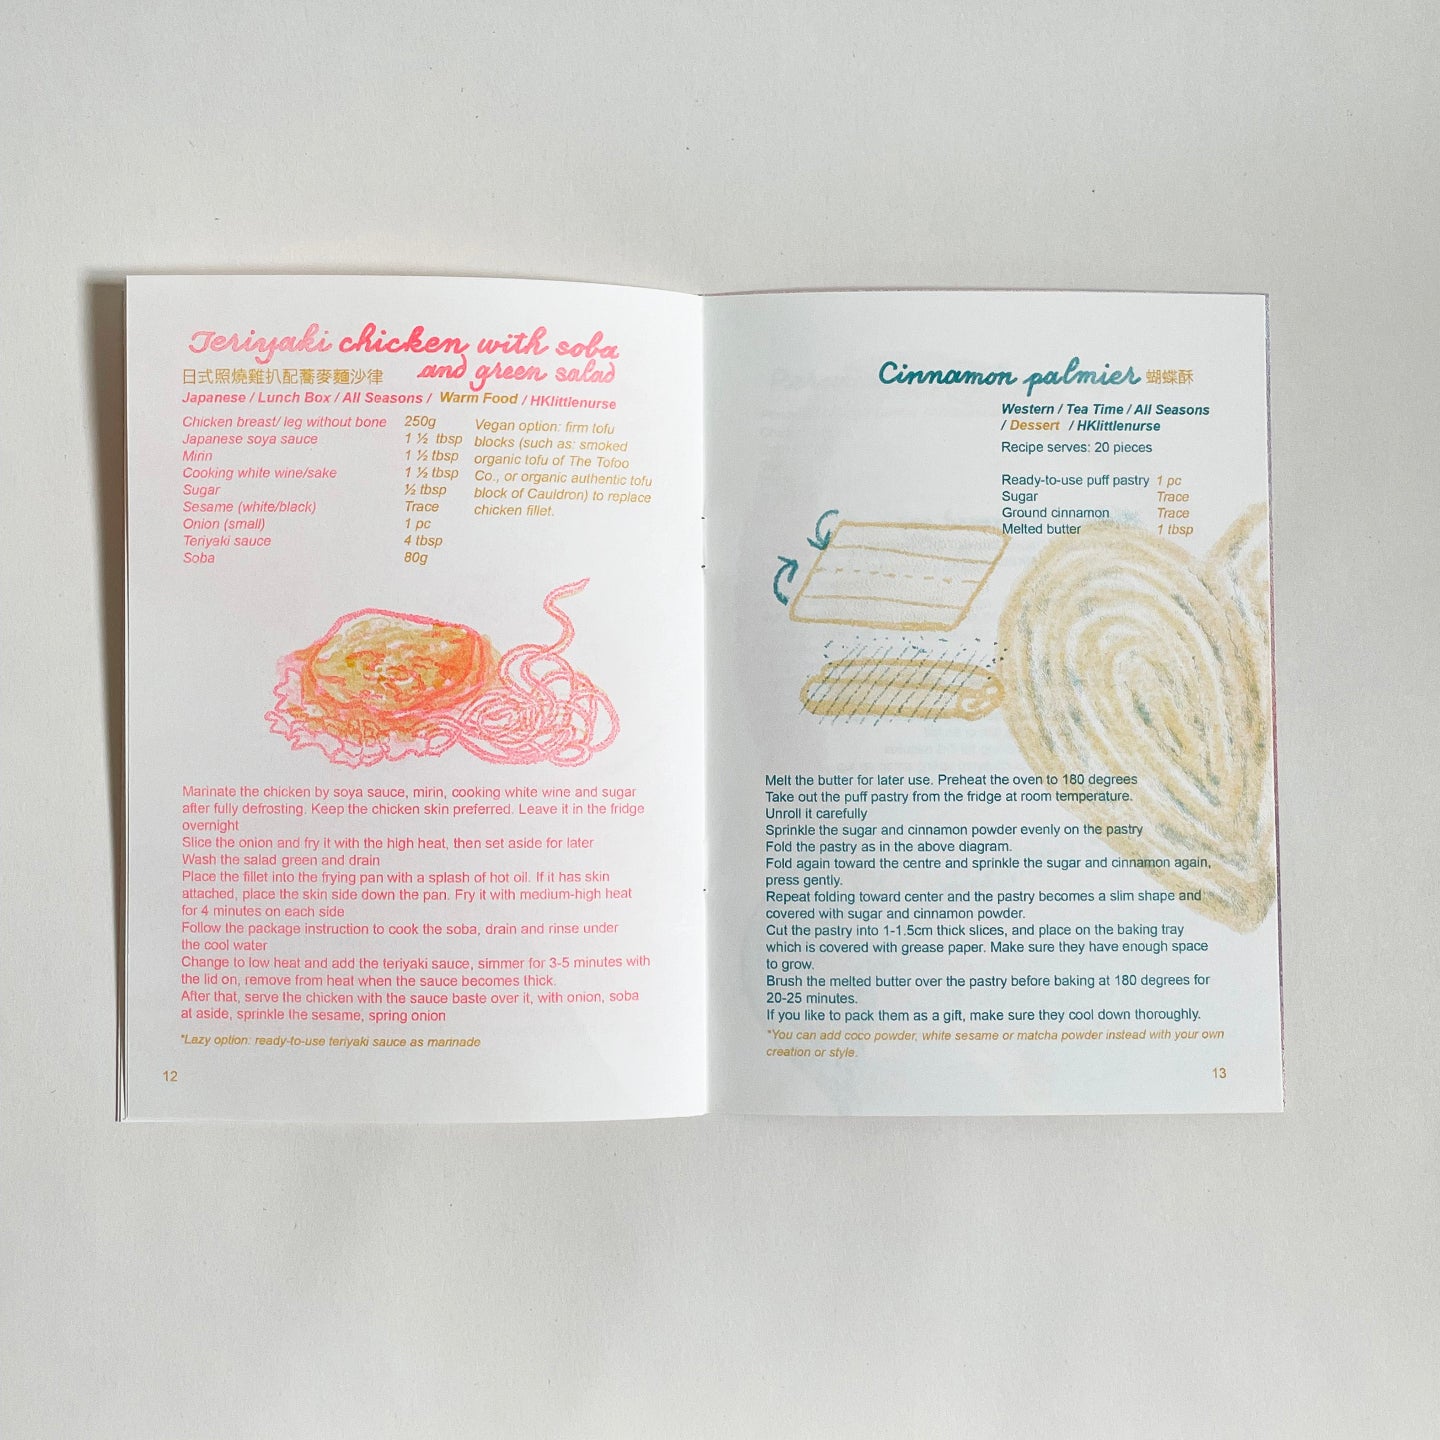 Teriyaki chicken with soba
and green salad
日式照燒雞扒配蕎麥麵沙律
Japanese / Lunch Box / All Seasons / Warm Food / HKlittlenurse
Chicken breast/ leg without bone 250g
Japanese soya sauce 1 ½ tbsp
Mirin 1 ½ tbsp
Cooking white wine/sake 1 ½ tbsp
Sugar ½ tbsp
Sesame (white/black) Trace
Onion (small) 1 pc
Teriyaki sauce 4 tbsp
Soba 80g
Vegan option: firm tofu
blocks (such as: smoked
organic tofu of The Tofoo
Co., or organic authentic tofu
block of Cauldron) to replace
chicken fillet.
Marinate the chicken by soya sauce, mirin, cooking white wine and sugar
after fully defrosting. Keep the chicken skin preferred. Leave it in the fridge
overnight
Slice the onion and fry it with the high heat, then set aside for later
Wash the salad green and drain
Place the fillet into the frying pan with a splash of hot oil. If it has skin
attached, place the skin side down the pan. Fry it with medium-high heat
for 4 minutes on each side
Follow the package instruction to cook the soba, drain and rinse under
the cool water
Change to low heat and add the teriyaki sauce, simmer for 3-5 minutes with
the lid on, remove from heat when the sauce becomes thick.
After that, serve the chicken with the sauce baste over it, with onion, soba
at aside, sprinkle the sesame, spring onion
*Lazy option: ready-to-use teriyaki sauce as marinade
12
Cinnamon palmier 蝴蝶酥
Western / Tea Time / All Seasons
/ Dessert / HKlittlenurse
Recipe serves: 20 pieces
Ready-to-use puff pastry 1 pc
Sugar Trace
Ground cinnamon Trace
Melted butter 1 tbsp
Melt the butter for later use. Preheat the oven to 180 degrees
Take out the puff pastry from the fridge at room temperature.
Unroll it carefully
Sprinkle the sugar and cinnamon powder evenly on the pastry
Fold the pastry as in the above diagram.
Fold again toward the centre and sprinkle the sugar and cinnamon again,
press gently.
Repeat folding toward center and the pastry becomes a slim shape and
covered with sugar and cinnamon powder.
Cut the pastry into 1-1.5cm thick slices, and place on the baking tray
which is covered with grease paper. Make sure they have enough space
to grow.
Brush the melted butter over the pastry before baking at 180 degrees for
20-25 minutes.
If you like to pack them as a gift, make sure they cool down thoroughly.
*You can add coco powder, white sesame or matcha powder instead with your own
creation or style.
13